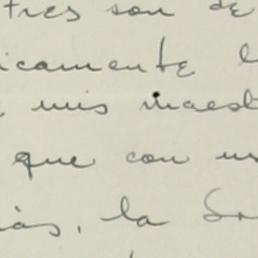 tres son de
icamente
mis maest
que con un
ias, la